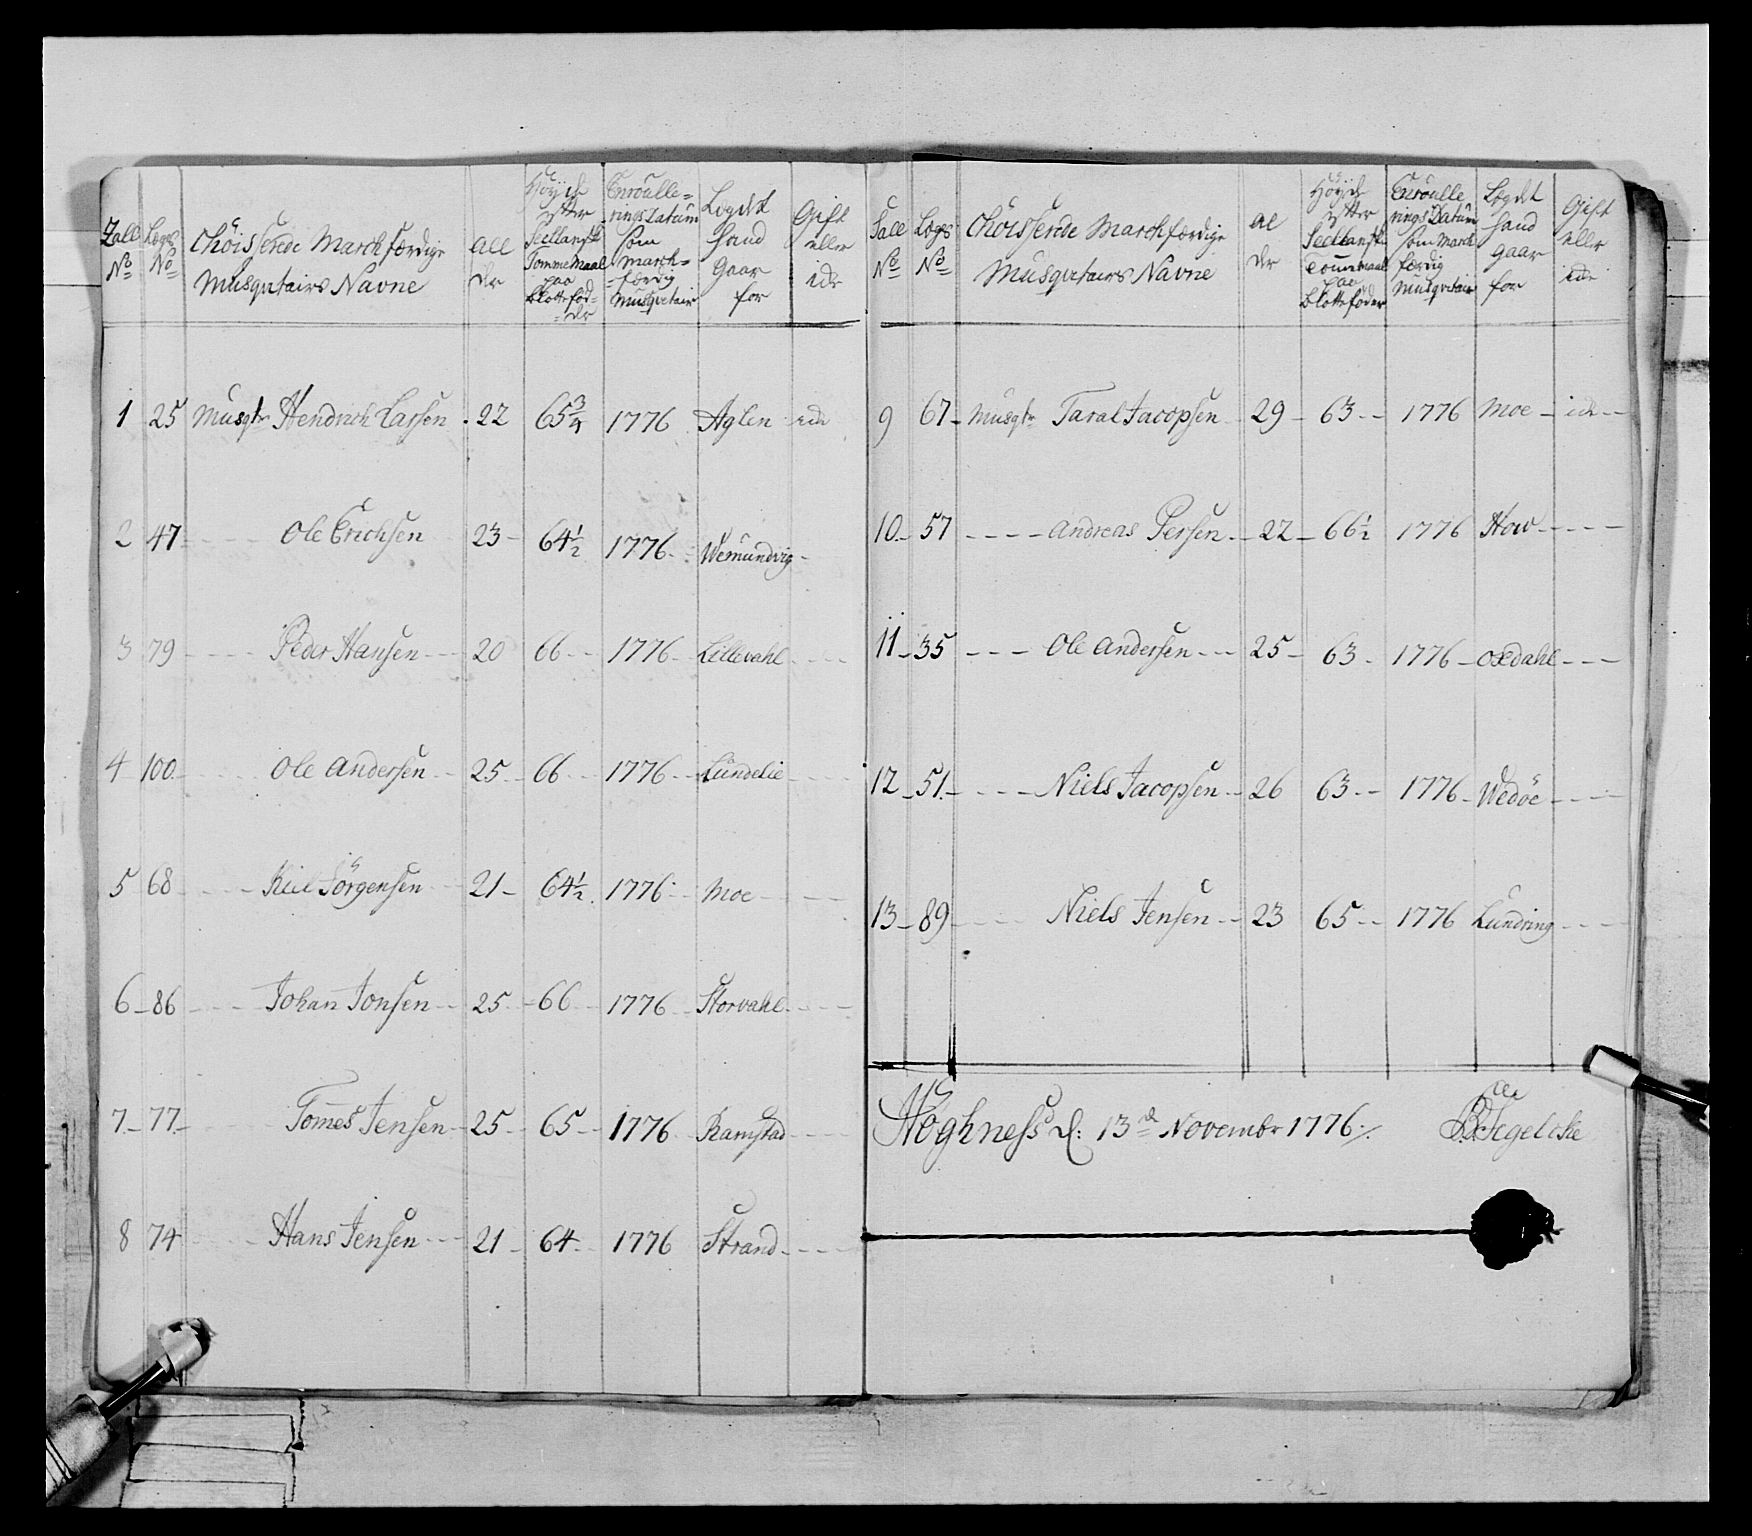 Tall No Lægs No Choisserede Marchfærdige Musqvetairs Navne all der Höyde efter Siellansk Tomme Maal paa blotte föd=der Enroulle=rings Datum som march=færdig Musqvetair Legdet hand gaar for Gift eller ide
1 25 Musqtr Hendrich Larsen 22 65 3/4 1776 Aglen ide
2 47 - - - Ole Erichsen 23 - 64 1/2 1776 - Wemundvig -
3 79 - - - Peder Hansen - - 20 66 - - 1776 - Lillevahl - - -
4 100 - - - Ole Andersen - - 25 - 66 - - 1776 - - Lundelie - - -
5 68 - - - Kiel Jörgensen 21 - 64 1/2 1776 - Moe - - -
6 - 86 - - - Johan Jonsen - - 25 - 66 - - 1776 - Storvahl - - -
7 - 77 - Tomes Jensen - 25 - 65 - - 1776 Ramstad - - -
8 74 - - - Hans Jensen - - 21 - 64 - 1776 Strand - - -
Tall No Lægs No Choisserede Marchfærdige Musqvetairs Navne al der Höyde efter Siellansk Tomme maal paa blotte föder Enroulle rings Datum som March færdig Musqvetair Legdet hand gaar for Gift eller ide
9 67 - Musqtr Taral Jacopsen - 29 - 63 - - 1776 Moe - ide -
10 - 57 - - - - Andreas Persen - - 22 - 66 1/2 1776 How - - - -
11 - 35 - - - Ole Andersen - - - 25 - 63 - 1776 - Oxdahl - - -
12 - 51 - - - - Niels Jacopsen - - 26 63 - - 1776 - Wedöe - - -
13 - 89 - - - Niels Jensen - - 23 65 - - 1776 Lundring - - -
Höghness d: 13d Novembr 1776 ./. Segelcke